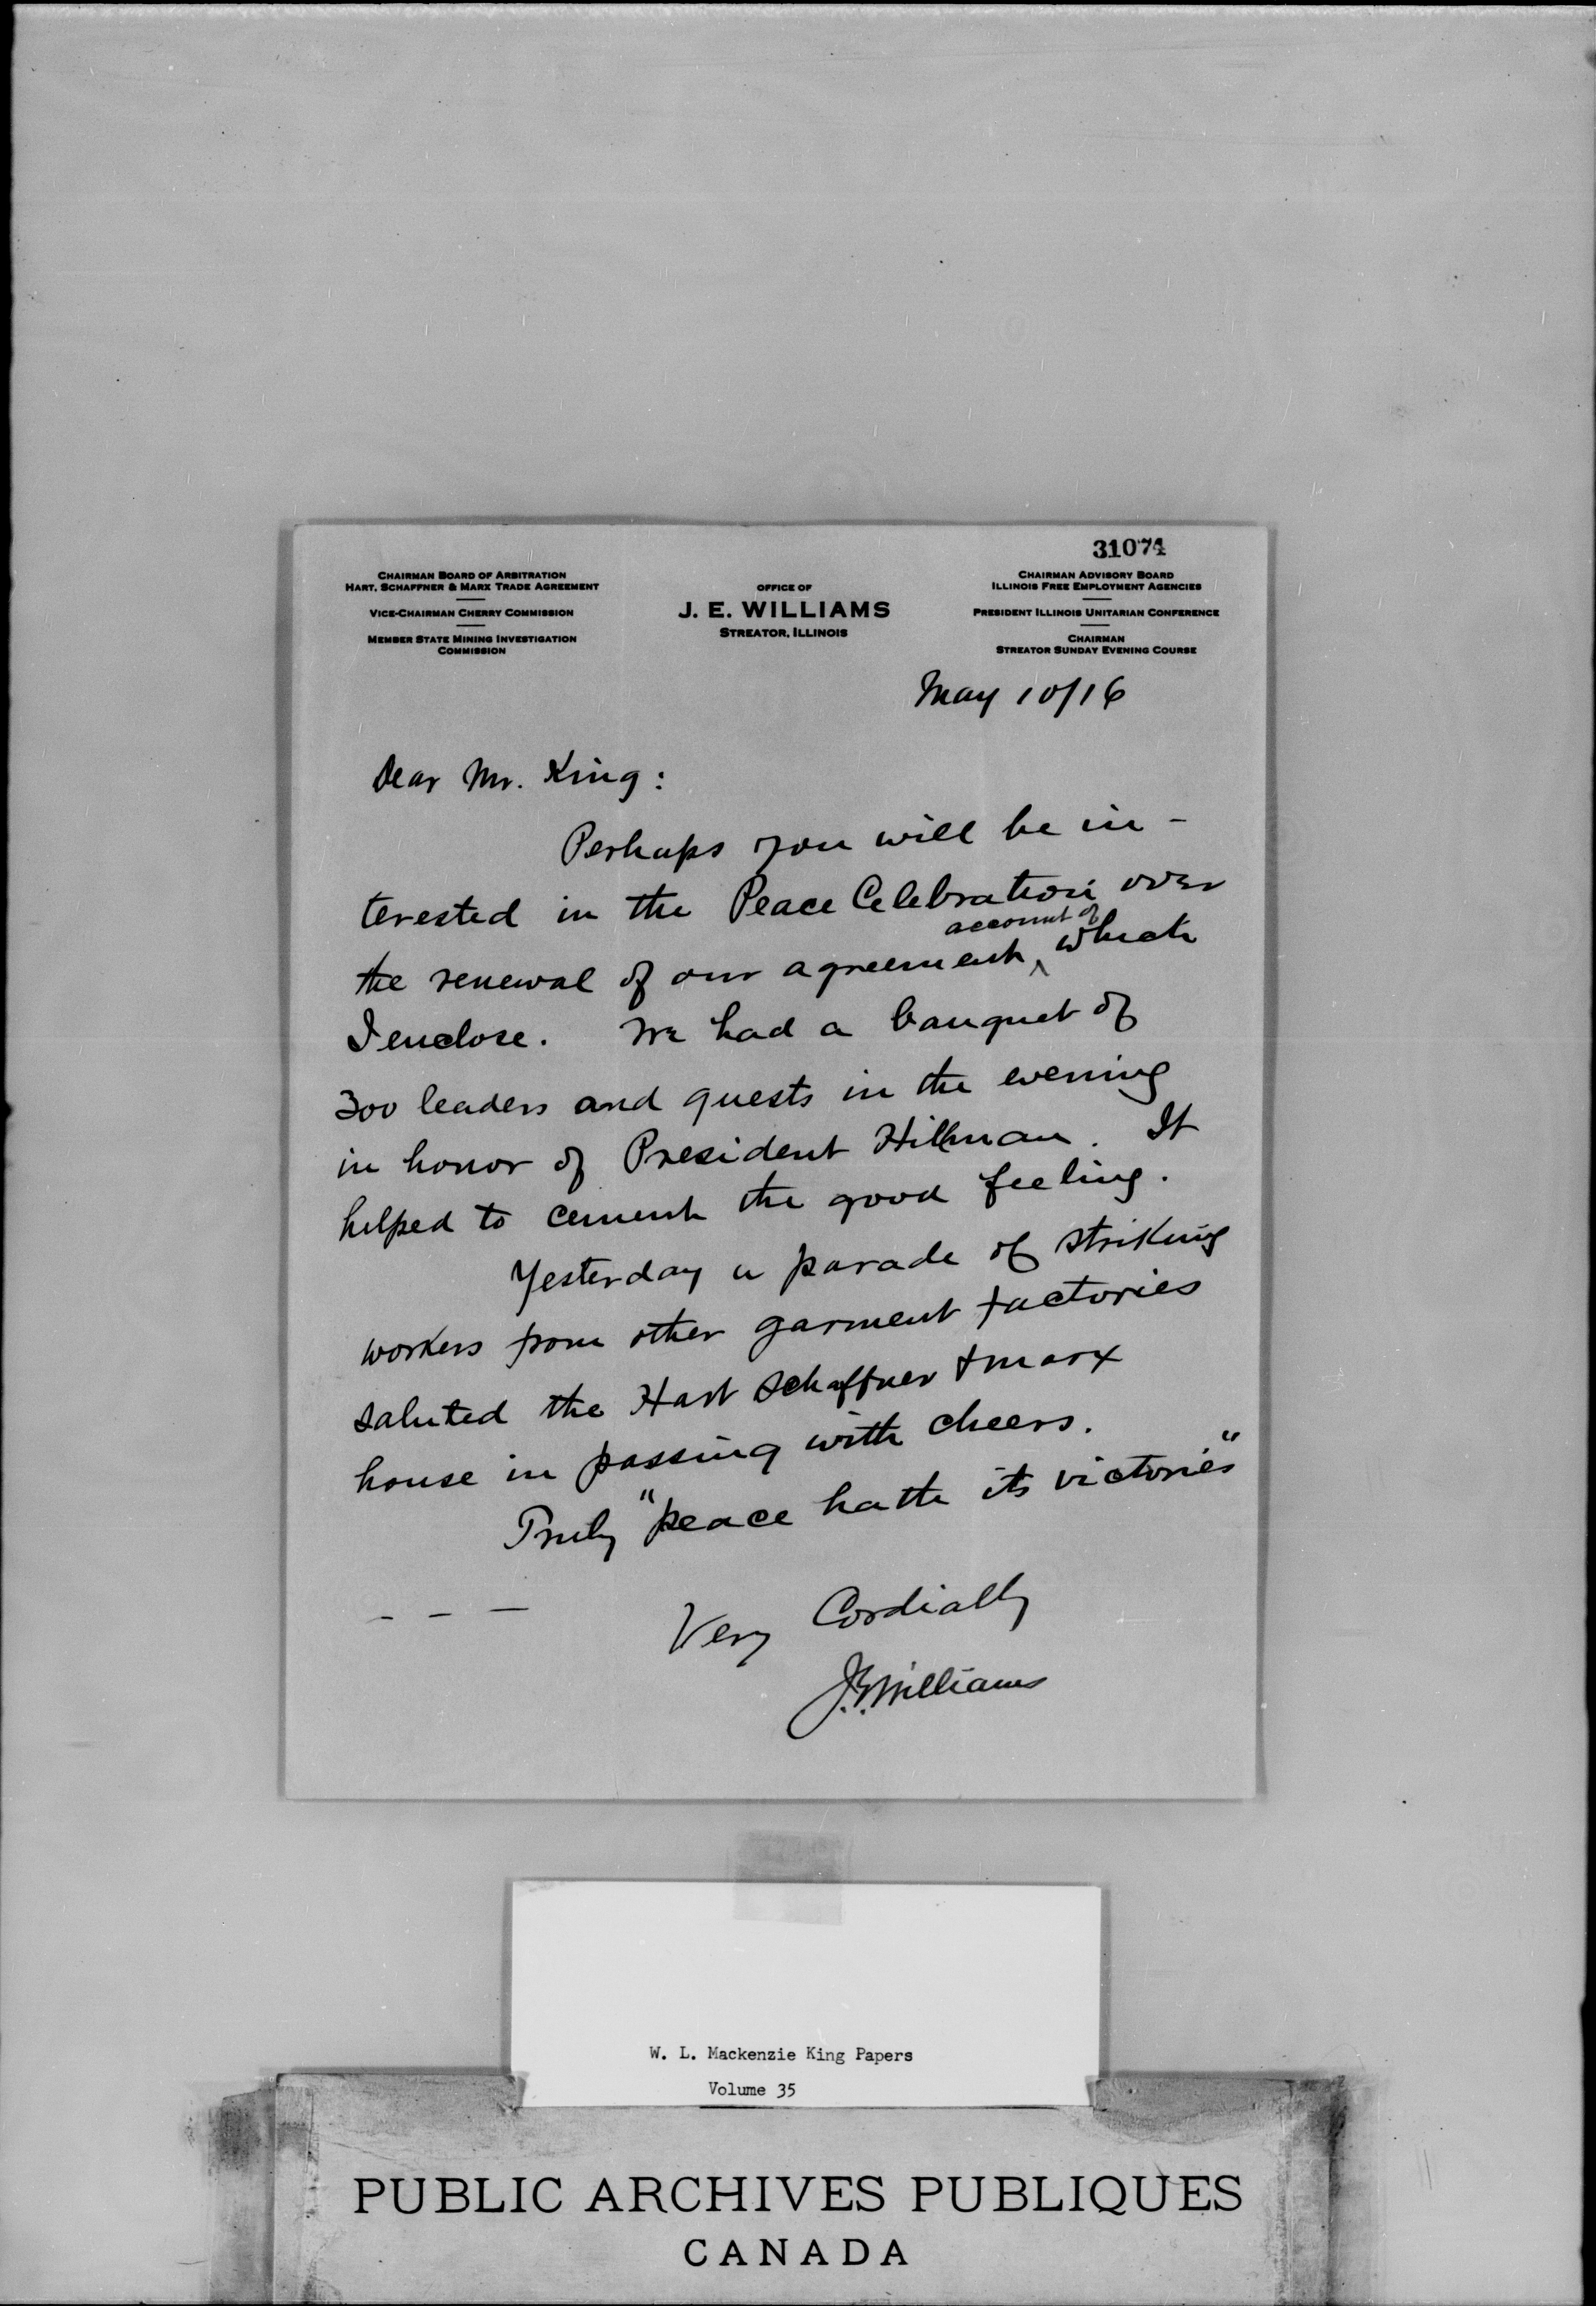 31074
CHAIRMAN BOARD OF ARBITRATION
HART, SCHAFFNER & MARX TRADE AGREEMENT
VICE-CHAIRMAN CHERRY COMMISSION
MEMBER STATE MINING INVESTIGATION
COMMISSION
OFFICE OF
J. E. WILLIAMS
STREATOR, ILLINOIS
CHAIRMAN ADVISORY BOARD
ILLINOIS FREE EMPLOYMENT AGENCIES
PRESIDENT ILLINOIS UNITARIAN CONFERENCE
CHAIRMAN
STREATOR SUNDAY EVENING COURSE
May 10/16
Dear Mr. King:
Perhaps you will be in-
terested in the Peace Celebration over
account of
the renewal of our agreement ‸ which
I enclose. We had a banquet of
300 leaders and guests in the evening
in honor of President Hillman. It
helped to cement the good feeling.
Yesterday a parade of striking
workers from other garment factories
saluted the Hart Schaffner & Marx
house in passing with cheers.
Truly "peace hath its victories"
– – –
Very Cordially
J.E. Williams
W. L. Mackenzie King Papers
Volume 35
PUBLIC ARCHIVES PUBLIQUES
CANADA